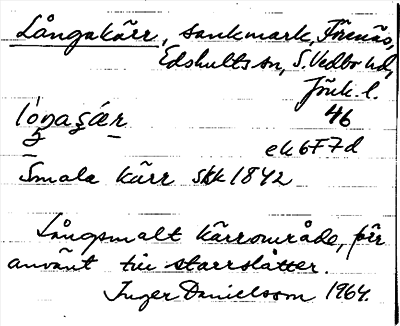 Långakärr, sankmark, Förnäs,
Edshults sn, S. Vedbo hd,
Jönk. l.
46
ek 6F7d
Smala kärr skk 1842
Långsmalt kärrområde, förr
använt till starrslåtter.
Inger Danielsson 1964.